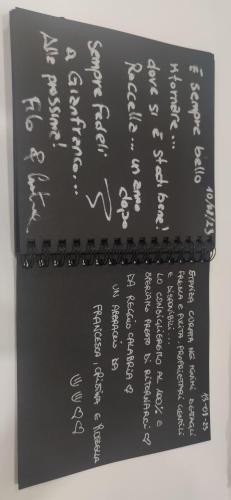 10/08/23
È sempre bello
ritornare...
dove si è stati bene!
Roccella... un anno
dopo
Sempre fedeli
a Gianfranco...
Alla prossima!
Filo &
13-08-23
STANZA CURATA NEI MINIMI DETTAGLI
FRESCA E PULITA, PROPRIETARI GENTILI
E DISPONIBILI...
LO CONSIGLIEREMO AL 100% E
SPERIAMO PRESTO DI RITORNARCI ♡
DA REGGIO CALABRIA ♡
UN ABBRACCIO DA
FRANCESCA, CRISTINA E REBECCA
♡♡